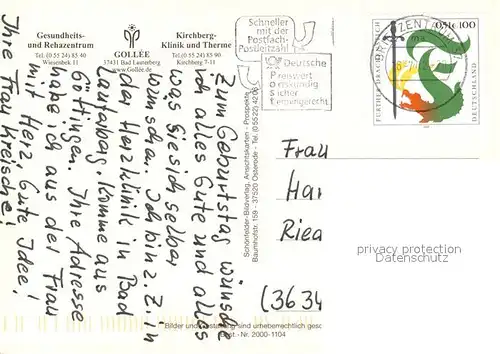 Gesundheits-
und Rehazentrum
Tel. (0 55 24) 83 40
Wiesenbek 11
GOLLÉE
37431 Bad Lauterberg
www.Gollée.de
Kirchberg-
Klinik und Therme
Tel. (0 55 24) 85 90
Kirchberg 7-11
Schneller
mit der
Postfach-
Postleitzahl
Deutsche
Preiswert
Ortskundig
Sicher
Termingerecht
BRIEFZENTRUM 37
FURTHER DRACHENSTICH
0,51€ 100
DEUTSCHLAND
Zum Geburtstag wünsche
ich alles Gute und alles
was Sie sich selber
wünschen. Ich bin z. Z. in
der Herzklinik in Bad
Lauterberg. Komme aus
Göttingen. Ihre Adresse
habe ich aus der Frau
mit Herz. Gute Idee!
Ihre Frau Kreische!
Schönfelder-Bildverlag, Ansichtskarten - Prospekte
Baumhofstr. 159 - 37520 Osterode - Tel. (0 55 22) 42 06
Frau
Har
Riea
(3634
privacy protection
Datenschutz
Bilder und Gestaltung sind urheberrechtlich gesc
Best.-Nr. 2000-1104